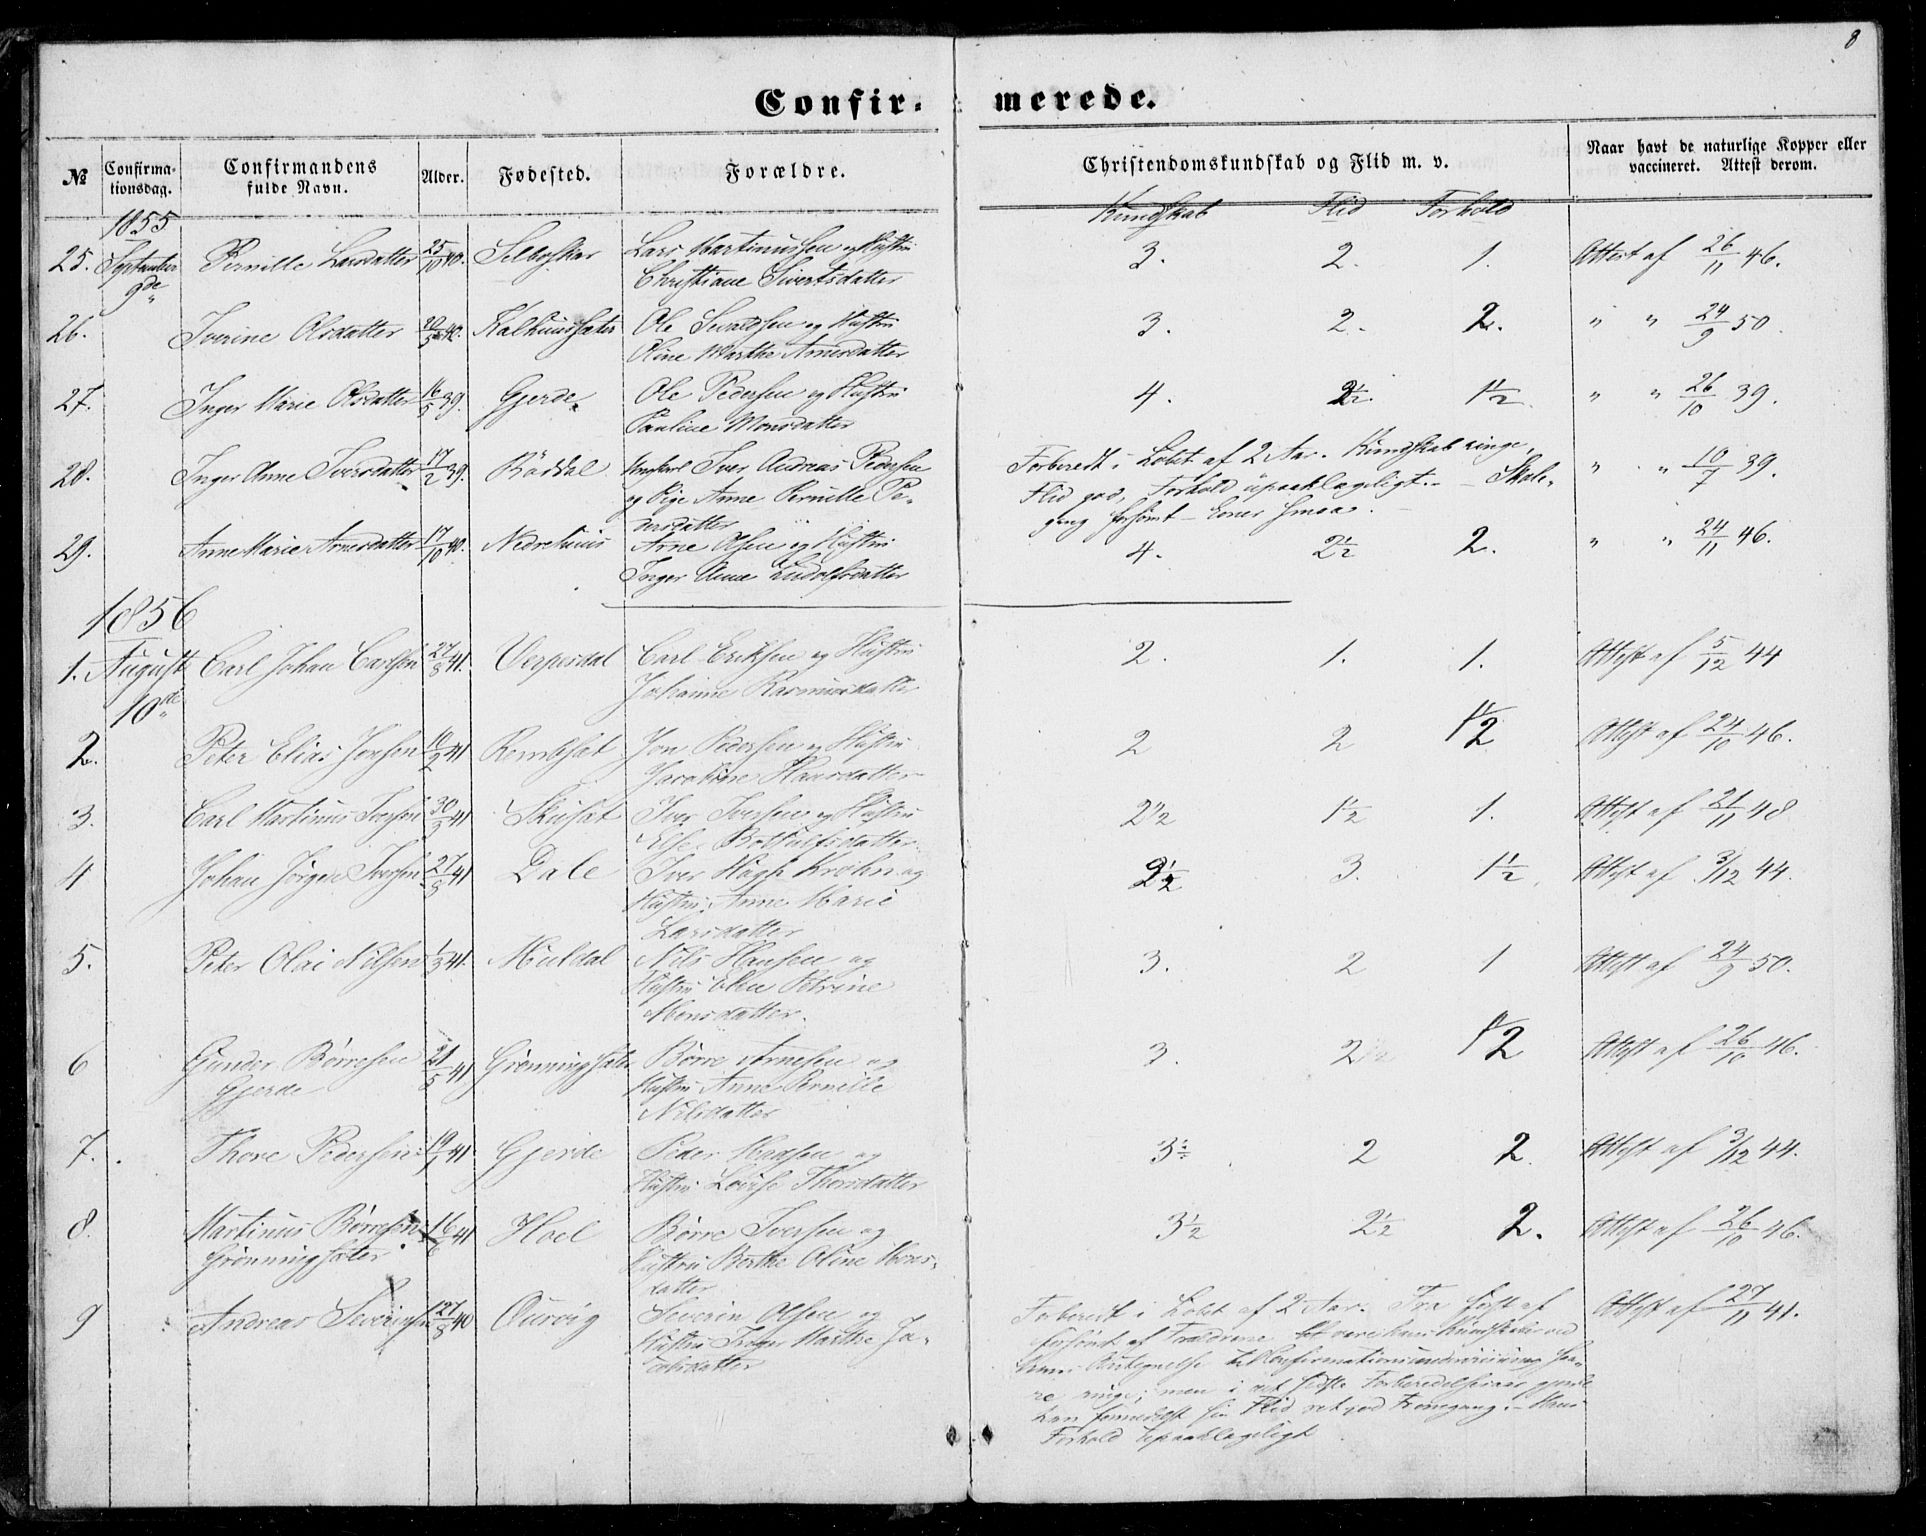 8
Confir- merede.
№ Confirma-tionsdag. Confirmandens fulde Navn. Alder. Fødested. Forældre. Christendomskundskab og Flid m. v. Naar havt de naturlige Kopper eller vaccineret. Attest derom.
1855 Kundskab Flid Forhold
25. September 9de Pernille Larsdatter 25/10 40. Selboskar Lars Martinussen og Hustru 3. 2. 1. Attest af 26/11 46.
Christiane Sivertsdatter
26. Iverine Olsdatter 40. Ole Sevaldsen og Hustru 3. 2. 2. " " 24/9 50.
Oline Marthe Arnesdatter
27. Inger Marie Olsdatter 16/5 39. Gjerde. Ole Pedersen og Hustru 4. 2½. 1½. " " 26/10 39.
Pauline Monsdatter
28. Inger Anne Iversdatter 17/2 39. Røddal Iver Andreas Pedersen Forberedt i Løbet af 2 Aar. Kundskab ringe, " " 10/7 39.
og Pige Anne Pernille Pe- Flid god, Forhold upaaklageligt. - Skole-
dersdatter gang forsømt - Evner smaa.
29. Anne Marie Arnesdatter 17/10 40. Nedrehuus Arne Olsen og Hustru 4. 2½ 2. " " 24/11 46.
Inger Anne Ludolfsdatter
1856
1. August 10de Carl Johan Carlsen 27/8 41. Verpesdal Carl Eriksen og Hustru 2. 1. 1. Attest af 5/12 44
Johanne Rasmusdatter
2. Peter Elias Jonsen 41 Jon Pedersen og Hustru 2 2 1½ Attest af 24/10 46.
Jacobine Hansdatter
3. Carl Martinus Iversen 30/3 41 Skusæt Iver Iversen og Hustru 2½ 1½ 1. Attest af 21/11 48
Else Bothulfsdatter
4 Johan Jørgen Iversen 27/8 41 Dale Iver Høgh Krohn og 2½ 3. 1½. Attest af 3/12 44.
Hustru Anne Marie
Larsdatter
5. Peter Olai Nilsen 1/3 41. Muldal Nils Hansen og 3. 2 1 Attest af 24/9 50.
Hustru Elen Petrine
Monsdatter.
6 Gunder Børresen 21/5 41 Grønningsæter Børre Arnesen og 3. 2 1½ Attest af 26/10 46.
Gjerde Hustru Anne Pernille
Nilsdatter
7. Thore Pedersen 41 Gjerde Peder Madsen og 3½ 2 2. Attest af 3/12 44.
Hustru Lovise Thorsdatter
8. Martinus Børresen 16/6 41 Hoel Børre Iversen og 3½ 2½ 2. Attest af 26/10 46.
Grønningsæter Hustru Berthe Oline Mons-
datter
9 Andreas Severinsen 27/8 40 Ourvig Severin Olsen og Forberedt i Løbet af 2 Aar. Fra først af Attest af 27/11 41.
Hustru Inger Marthe Ja- forsømt af Forældrene vare hans Kundskaber ved
cobsdatter hans Antegnelse til Konfirmationsundervisning saa-
re ringe; men i det sidste Forberedelsesaar gjorde
han formedelst sin Flid ret god Fremgang. - Hans
Forhold upaaklageligt